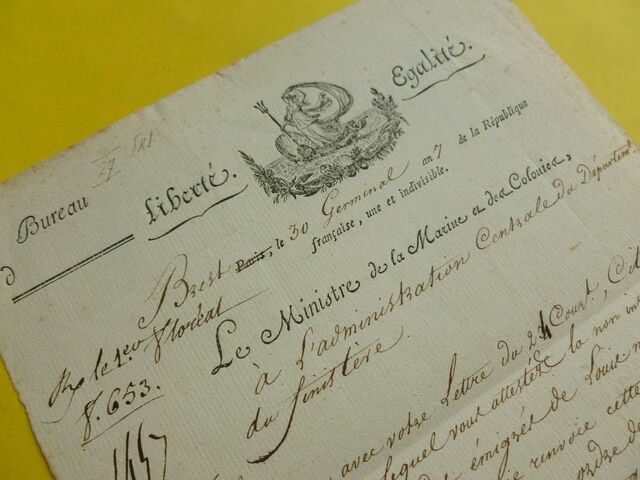 Liberté.
Egalité.
Bureau
d
Brest Paris, le 30 Germinal an 7 de la République
française, une et indivisible.
Le Ministre de la Marine et des Colonies,
à L'administration Centrale du Département
du finistère.
Rp le 1er floréal
f. 653.
avec votre Lettre du 24 Court, Cit
lequel vous attestés la non in
émigrés de Louis
renvoie cette
ordre de